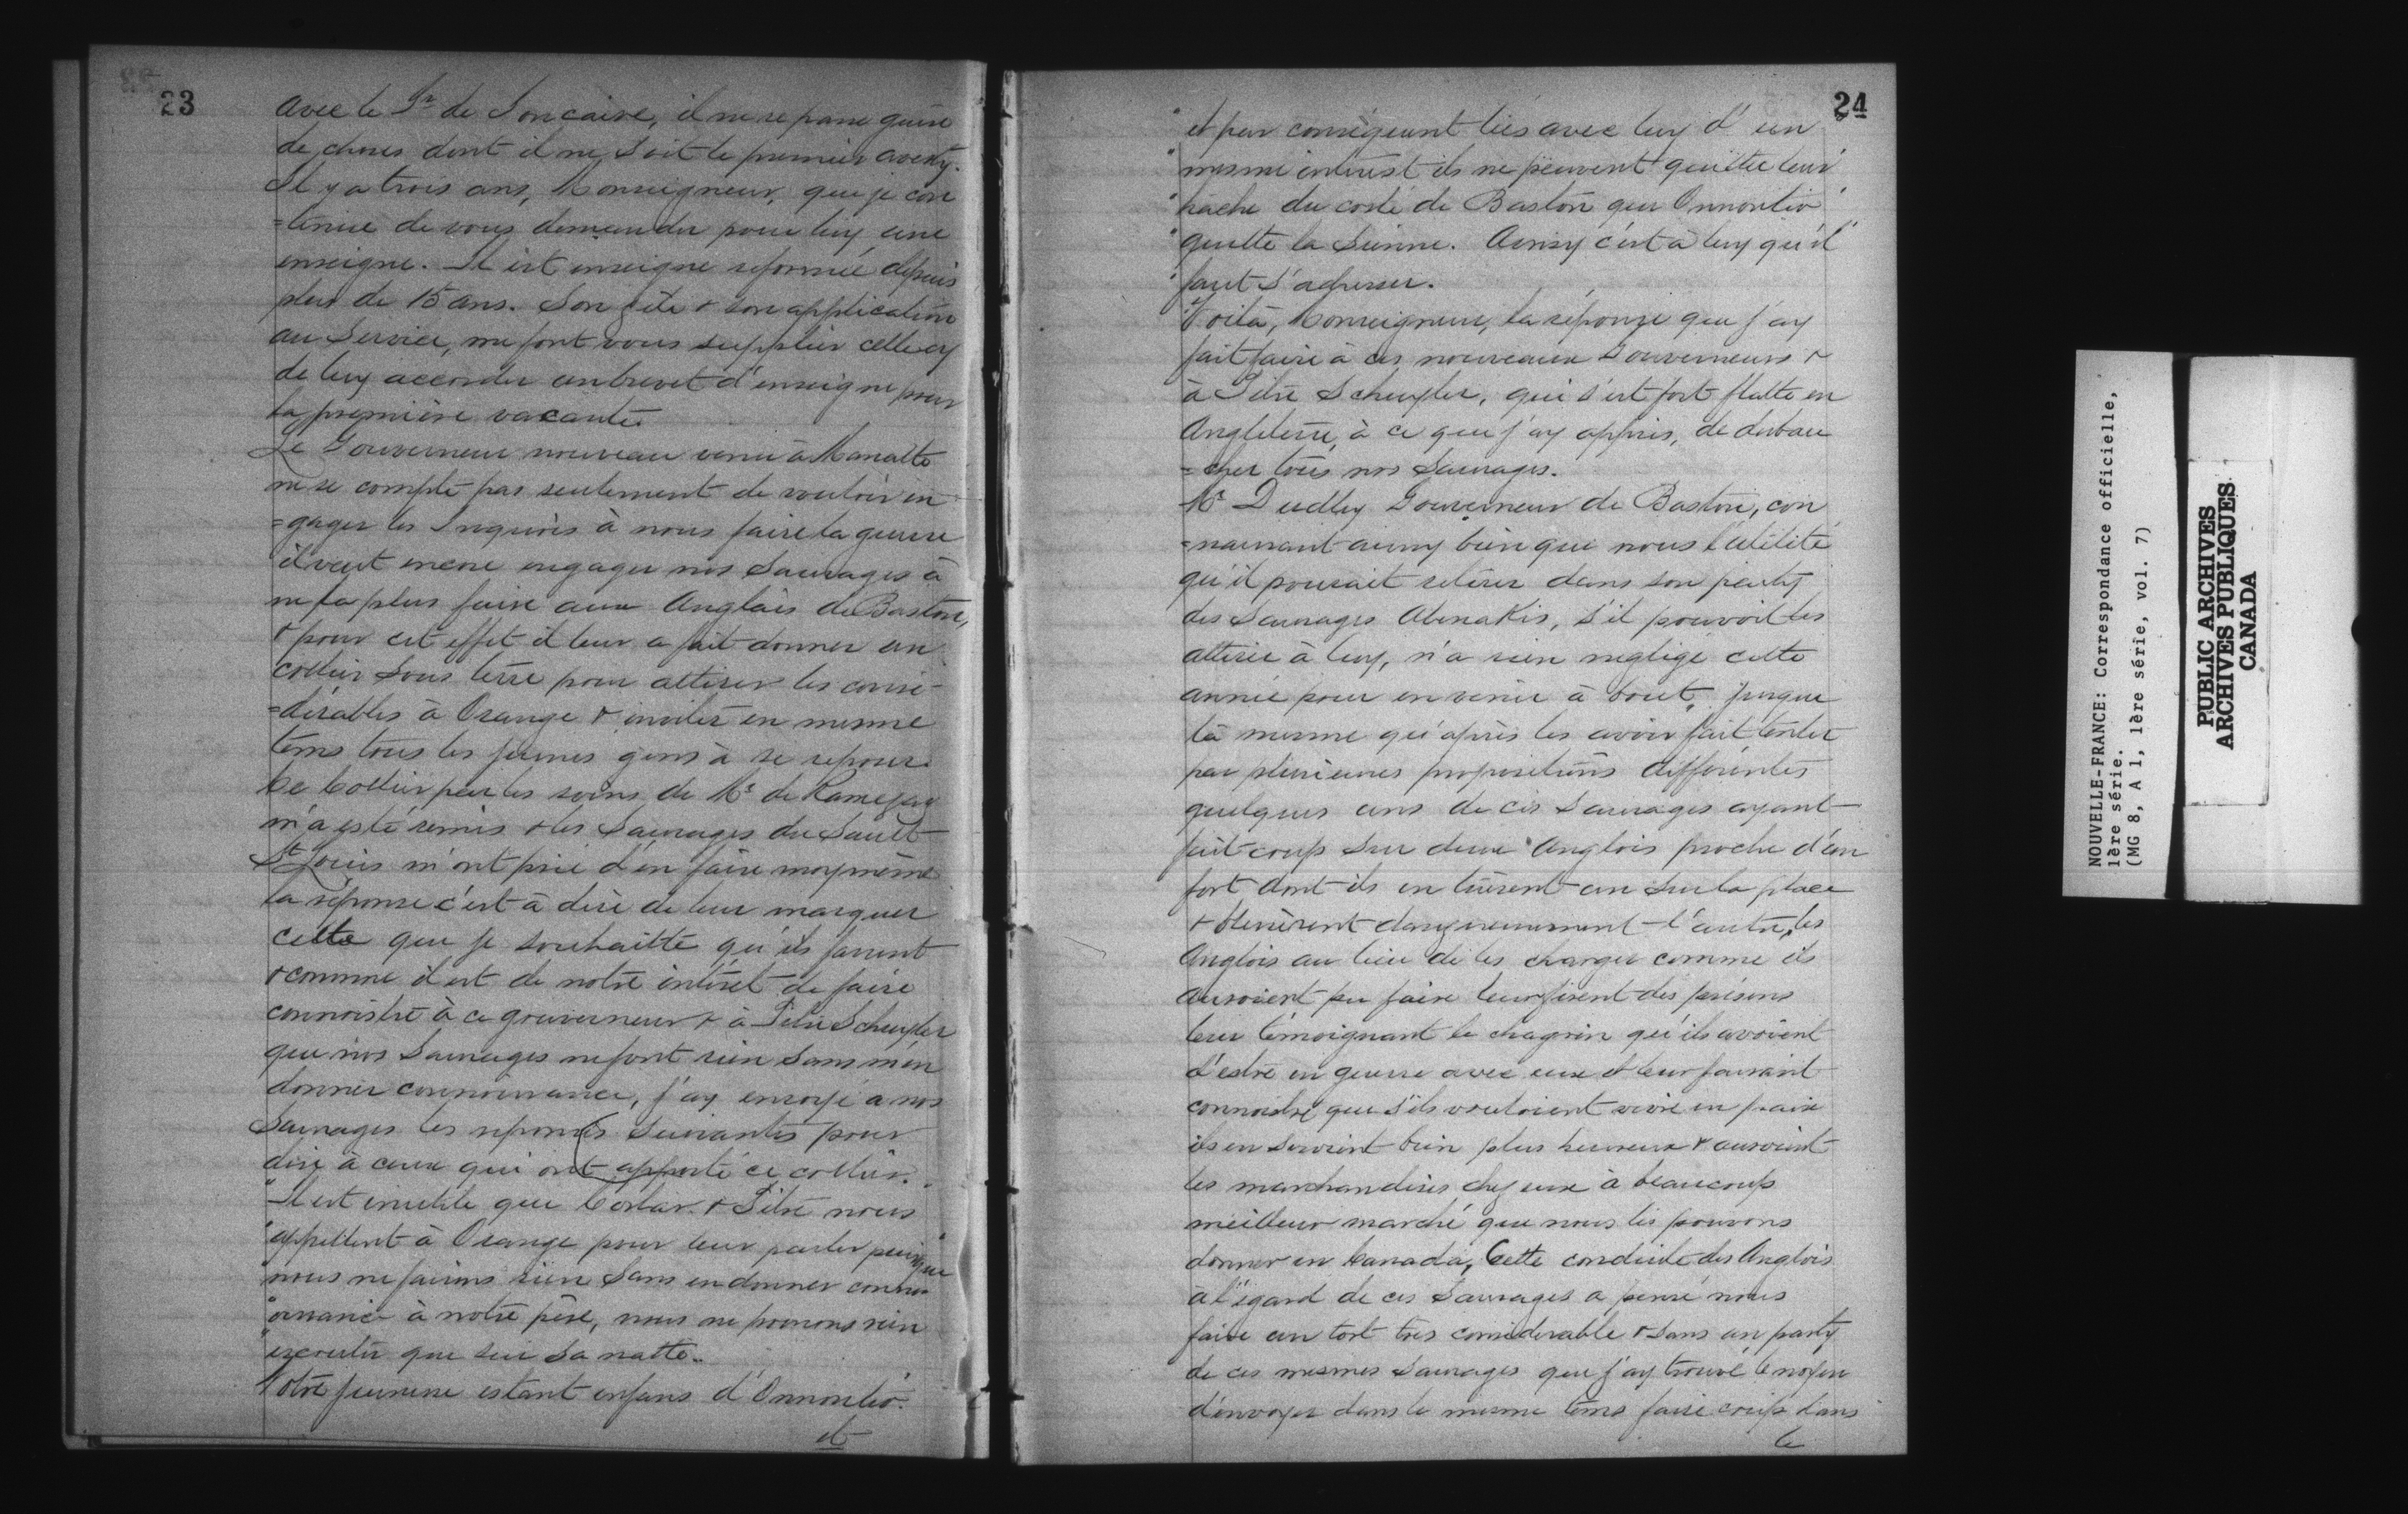 23
Avec le Sr de Joncaire, il ne se passe guère
de choses dont il ne soit le premier averty.
Il y a trois ans, Monseigneur, que je con
=tinue de vous demander pour luy une
enseigne. Il est enseigne reformée depuis
plus de 15 ans. Son zèle & son application
au Service, me font vous supplier celle cy
de luy accorder un brevet d'enseigne pour
la première vacante
Le Gouverneur nouveau venu à Manatte
ne se compte pas seulement de vouloir en
=gager les Iroquois à nous faire la guerre
il veut encore engager nos Sauvages à
ne la plus faire aux Anglais de Baston,
& pour cet effet il leur a fait donner un
collier sous terre pour attirer les consi
=dérables à Orange & inviter en mesme
tems tous les jeunes gens à se reposer
Ce Collier par les soins de Mr de Ramezay
m'a esté remis & les Sauvages du Sault
St Louis m'ont prié d'en faire moy même
la réponse c'est à dire de leur marquer
celle que je souhaitte qu'ils fassent
& comme il est de notre intéret de faire
connoistre à ce gouverneur & à Pitre Scheuyler
que nos Sauvages ne font rien sans m'en
donner connoissance, j'ay envoyé à nos
Sauvages les reponses suivantes pour
dire à ceux qui ont apporté ce collier.
"Il est inutile que Corlar & Pitre nous
"appellent à Orange pour leur parler puisque
"nous ne faisons rien sans en donner conno
"issance à notre père, nous ne pouvons rien
"escouter que sur sa natte..
Notre jeunesse estant enfans d'Onnontio.
et
24
"et par conséquent liés avec luy d'un
"mesme interest ils ne peuvent quitter leur
"hache du costé de Baston que Onnontio
"quitte la sienne. Ainsy c'est à luy qu'il
"faut s'adresser.
Voilà, Monseigneur, la réponse que j'ay
fait faire à ces nouveaux Gouverneurs &
à Pitre Scheuyler, qui s'est fort flatté en
Angleterre, à ce que j'ay appris, de debau
=cher tous nos Sauvages.
Mr Dudley Gouverneur de Baston, con
=naissant aussy bien que nous l'utilité
qu'il pourait retirer dans son party
des Sauvages Abenakis, s'il pouvoit les
attirer à luy, n'a rien negligé cette
année pour en venir à bout, jusque
là mesme qu'après les avoir fait tenter
par plusieurs propositions différentes
quelques uns de ces Sauvages ayant
fait coup sur deux Anglois proche d'un
fort dont ils en tuèrent un sur la place
& blessèrent dangereusement l'autre, les
Anglois au lieu de les charger comme ils
auroient pu faire leur firent des présens
leur témoignant le chagrin qu'ils avoient
d'estre en guerre avec eux et leur faisant
connoistre que s'ils vouloient vivre en paix
ils en seroient bien plus heureux & auroient
les marchandises chez eux à beaucoup
meilleur marché que nous les pouvons
donner en Canada, Cette conduite des Anglois
à l'égard de ces Sauvages a pensé nous
faire un tort très considerable & sans un party
de ces mesmes Sauvages que j'ay trouvé le moyen
d'envoyer dans le mesme tems faire coup dans
le
NOUVELLE-FRANCE: Correspondance officielle,
1ère série.
(MG 8, A 1, 1ère série, vol. 7)
PUBLIC ARCHIVES
ARCHIVES PUBLIQUES
CANADA